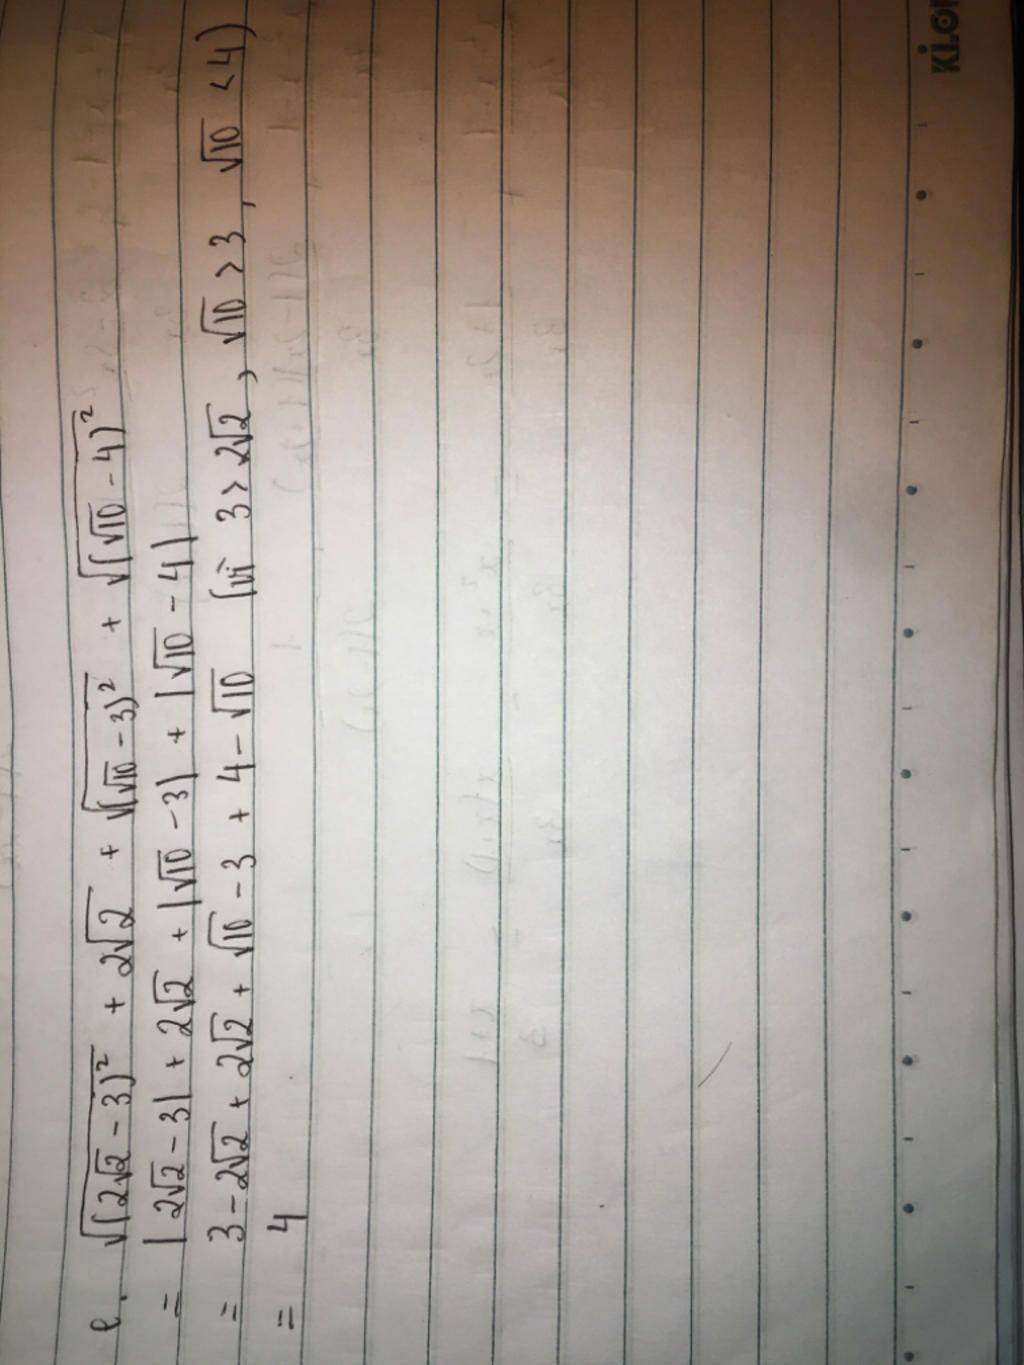 e. √(2√2 - 3)² + 2√2 + √(√10 - 3)² + √(√10 - 4)²
= |2√2 - 3| + 2√2 + |√10 - 3| + |√10 - 4|
= 3 - 2√2 + 2√2 + √10 - 3 + 4 - √10 (vì 3 > 2√2, √10 > 3, √10 < 4)
= 4